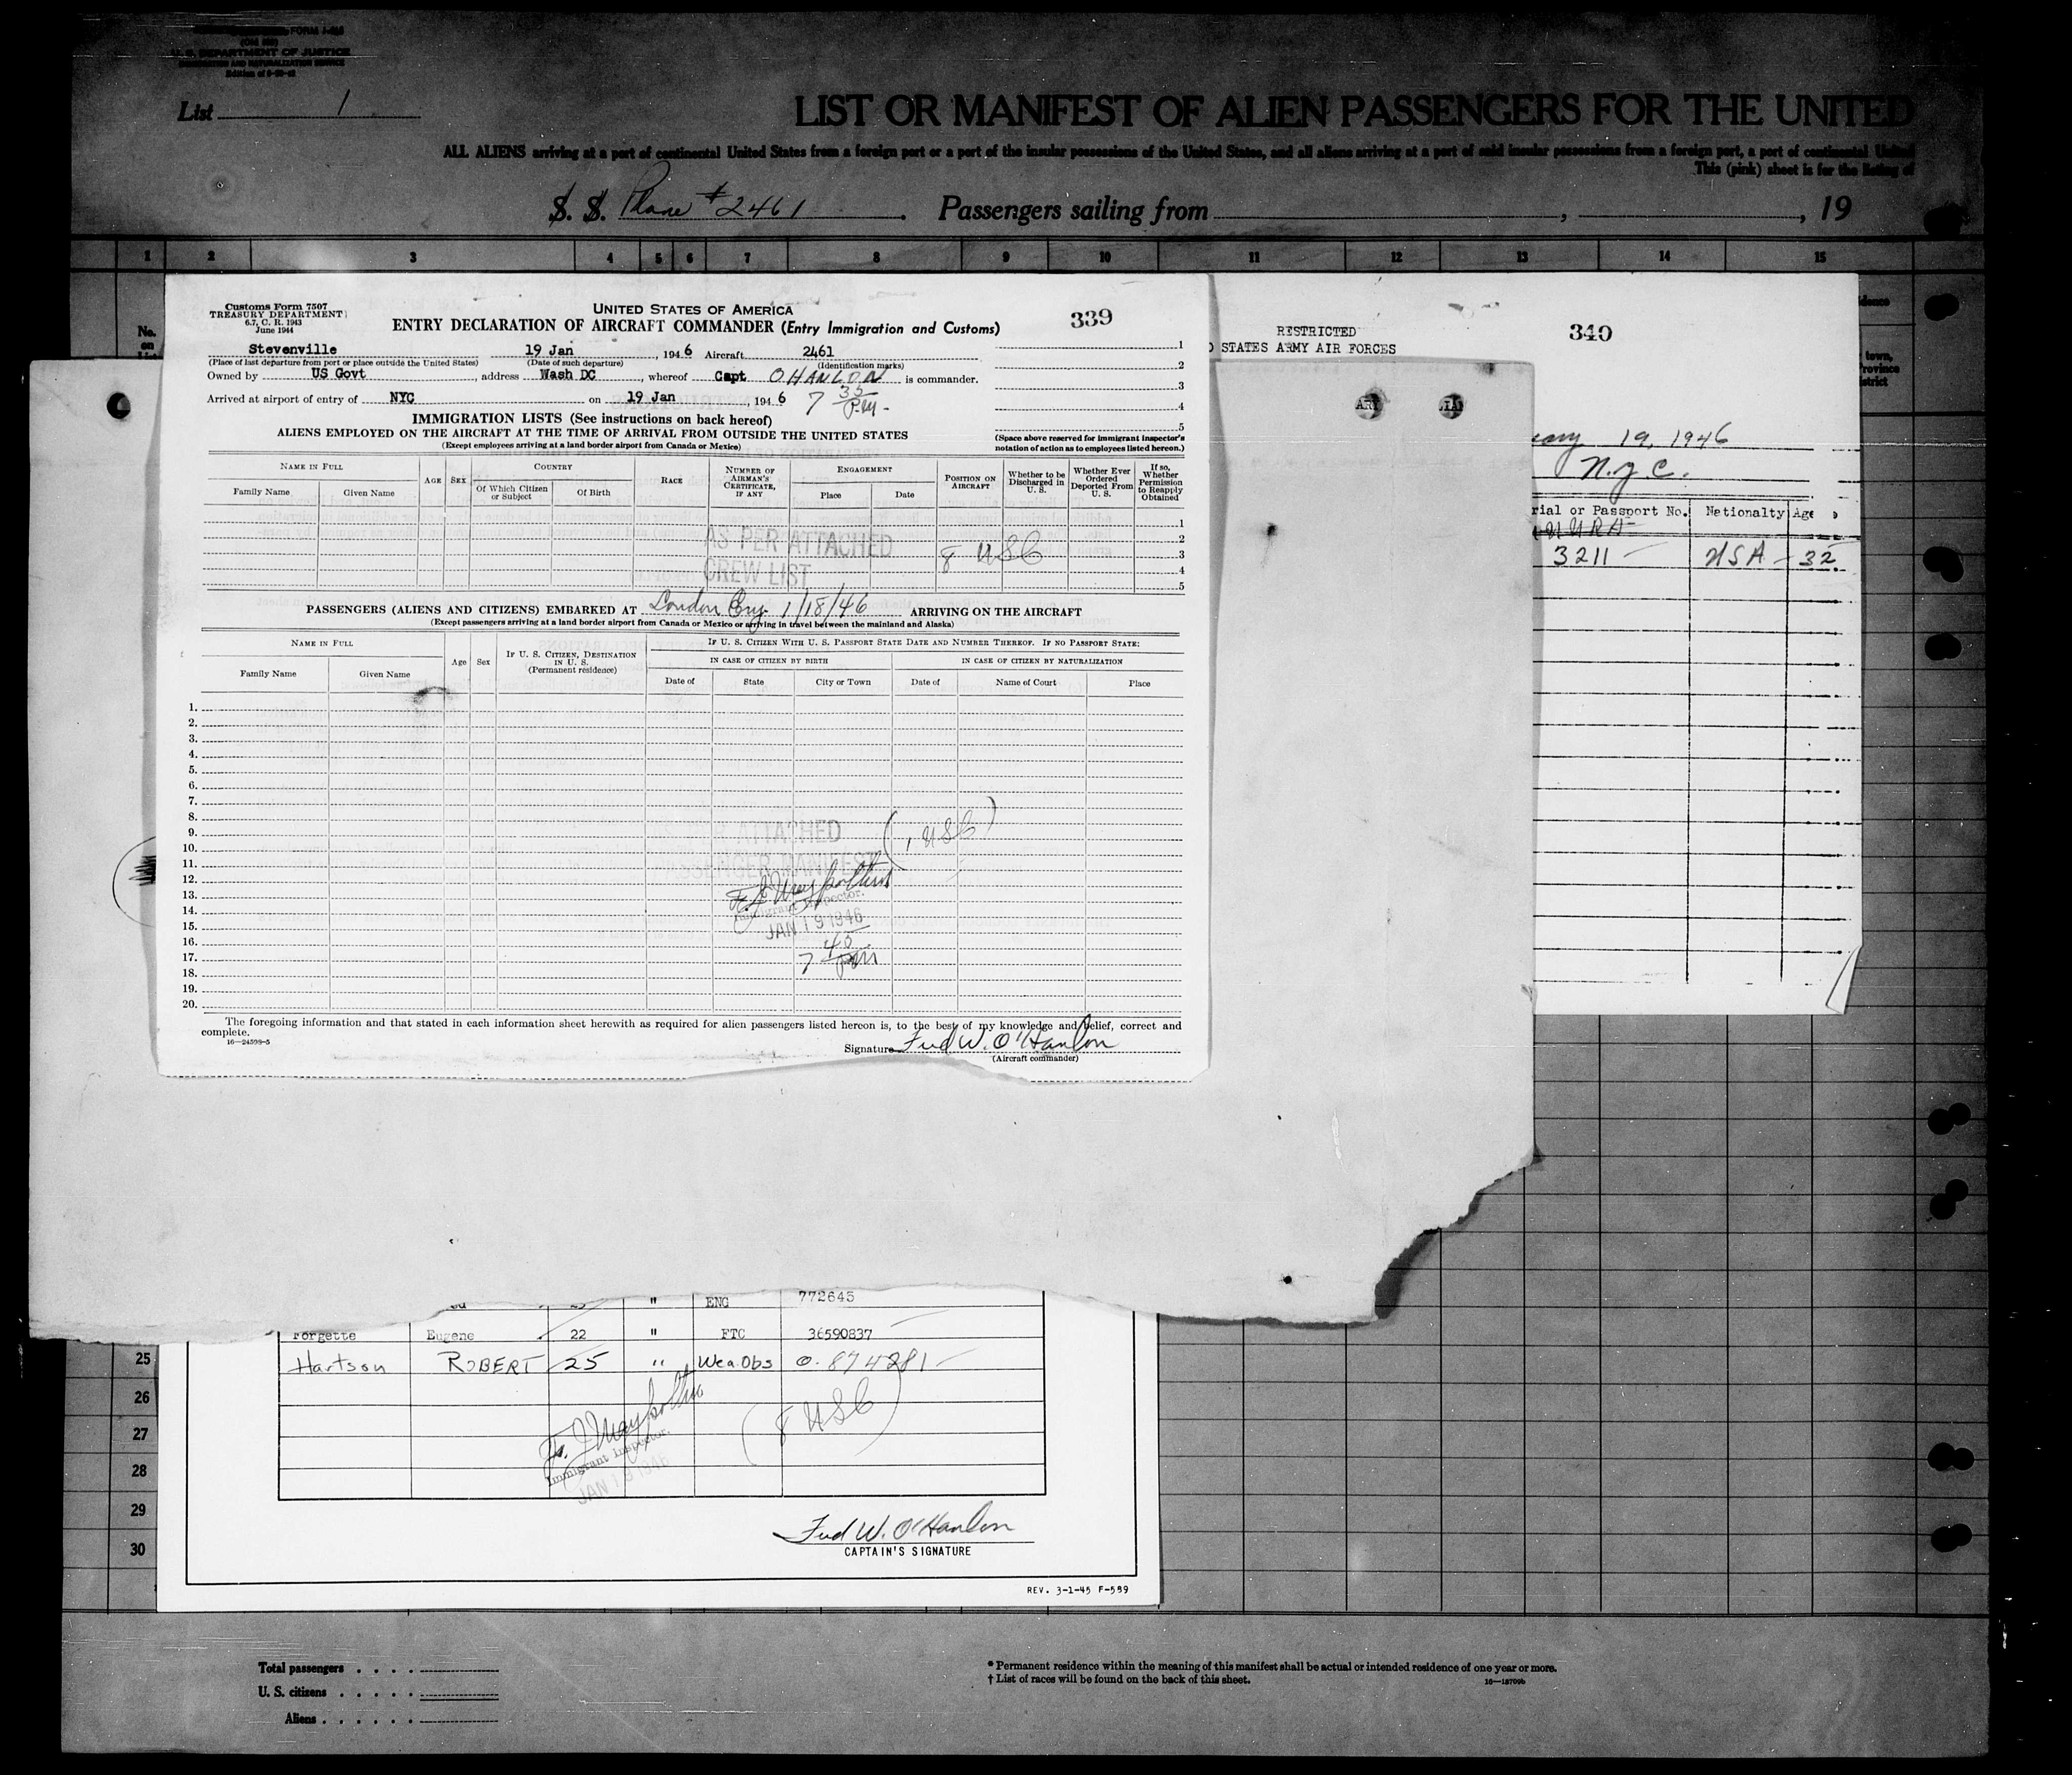 FORM I-415
U. S. DEPARTMENT OF JUSTICE
IMMIGRATION AND NATURALIZATION SERVICE
List 1
LIST OR MANIFEST OF ALIEN PASSENGERS FOR THE UNITED
ALL ALIENS arriving at a port of continental United States from a foreign port or a port of the insular possessions of the United States, and all aliens arriving at a port of said insular possessions from a foreign port, a port of continental United
This (pink) sheet is for the listing of
S. S. Plane #2461 Passengers sailing from , , 19
1 2 3 4 5 6 7 8 9 10 11 12 13 14 15
No.
on
Customs Form 7507
TREASURY DEPARTMENT
6.7, C. R. 1943
June 1944
UNITED STATES OF AMERICA
ENTRY DECLARATION OF AIRCRAFT COMMANDER (Entry Immigration and Customs)
339
Stevenville 19 Jan , 1946 Aircraft 2461
(Place of last departure from port or place outside the United States) (Date of such departure) (Identification marks)
Owned by US Govt , address Wash DC , whereof Capt O HANLON is commander.
Arrived at airport of entry of NYC on 19 Jan , 1946 7 35 P.M.
1
2
3
4
5
(Space above reserved for immigrant inspector's
notation of action as to employees listed hereon.)
IMMIGRATION LISTS (See instructions on back hereof)
ALIENS EMPLOYED ON THE AIRCRAFT AT THE TIME OF ARRIVAL FROM OUTSIDE THE UNITED STATES
(Except employees arriving at a land border airport from Canada or Mexico)
NAME IN FULL
Family Name Given Name
AGE SEX
COUNTRY
Of Which Citizen or Subject Of Birth
RACE
NUMBER OF AIRMAN'S CERTIFICATE, IF ANY
ENGAGEMENT
Place Date
POSITION ON AIRCRAFT
Whether to be Discharged in U. S.
Whether Ever Ordered Deported From U. S.
If so, Whether Permission to Reapply Obtained
1
2
3
4
5
AS PER ATTACHED
CREW LIST
8 USC
PASSENGERS (ALIENS AND CITIZENS) EMBARKED AT London Eng. 1/18/46 ARRIVING ON THE AIRCRAFT
(Except passengers arriving at a land border airport from Canada or Mexico or arriving in travel between the mainland and Alaska)
NAME IN FULL
Family Name Given Name
Age Sex
IF U. S. CITIZEN, DESTINATION IN U. S.
(Permanent residence)
IF U. S. CITIZEN WITH U. S. PASSPORT STATE DATE AND NUMBER THEREOF. IF NO PASSPORT STATE:
IN CASE OF CITIZEN BY BIRTH IN CASE OF CITIZEN BY NATURALIZATION
Date of State City or Town Date of Name of Court Place
1.
2.
3.
4.
5.
6.
7.
8.
9.
10.
11.
12.
13.
14.
15.
16.
17.
18.
19.
20.
AS PER ATTACHED
PASSENGER MANIFEST
(1 USC)
Immigrant Inspector.
JAN 19 1946
7 45 PM
The foregoing information and that stated in each information sheet herewith as required for alien passengers listed hereon is, to the best of my knowledge and belief, correct and
complete.
16—24598-5
Signature Fred W. O'Hanlon
(Aircraft commander)
RESTRICTED
STATES ARMY AIR FORCES
340
19, 1946
N.Y.C.
Passport No. Nationalty Age
3211 USA 32
town,
ENG 772645
Forgette Eugene 22 " FTC 36590837
Hartson ROBERT 25 " Wea.Obs O-874281
(8 USC)
Immigrant Inspector.
JAN 19 1946
25
26
27
28
29
30
Fred W. O'Hanlon
CAPTAIN'S SIGNATURE
REV. 3-1-45 F-589
Total passengers
U. S. citizens
Aliens
* Permanent residence within the meaning of this manifest shall be actual or intended residence of one year or more.
† List of races will be found on the back of this sheet.